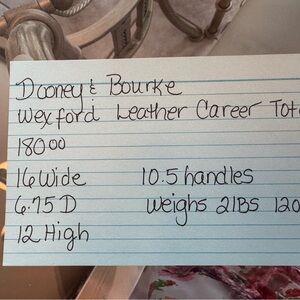 Dooney & Bourke
Wexford Leather Career Tote
18000
16 Wide 10.5 handles
6.75 D weighs 2lBS 120
12 High